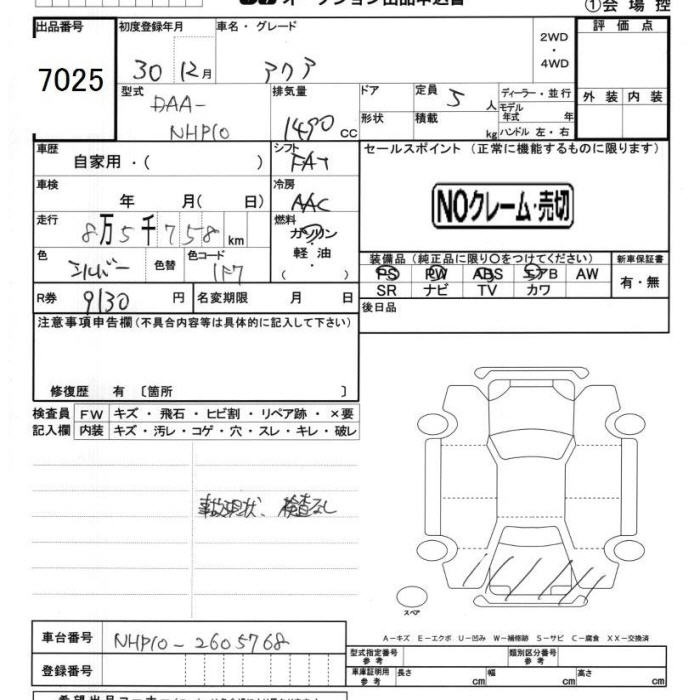 オークション出品申込書
①会場控
出品番号 初度登録年月 車名・グレード 2WD・4WD 評価点
7025 30 12月 アクア
型式 排気量 ドア 定員 5人 ディーラー・並行 外装 内装
DAA-NHP10 1490cc 形状 積載 kg モデル年式 年
ハンドル 左・右
車歴 自家用・( ) シフト FAT セールスポイント(正常に機能するものに限ります)
車検 年 月( 日) 冷房 AAC
NOクレーム・売切
走行 8万5千758km 燃料 ガソリン・軽油・( )
色 シルバー 色替 色コード 1F7
装備品(純正品に限り○をつけてください) 新車保証書
PS PW ABS エアB AW 有・無
SR ナビ TV カワ
R券 9130円 名変期限 月 日 後日品
注意事項申告欄(不具合内容等は具体的に記入して下さい)
修復歴 有〔箇所 〕
検査員 FW キズ・飛石・ヒビ割・リペア跡・×要
記入欄 内装 キズ・汚レ・コゲ・穴・スレ・キレ・破レ
事故現状、検査なし
スペア
A-キズ E-エクボ U-凹み W-補修跡 S-サビ C-腐食 XX-交換済
車台番号 NHP10-2605768 型式指定番号 参考 類別区分番号 参考
登録番号 車庫証明用 参考 長さ cm 幅 cm 高さ cm